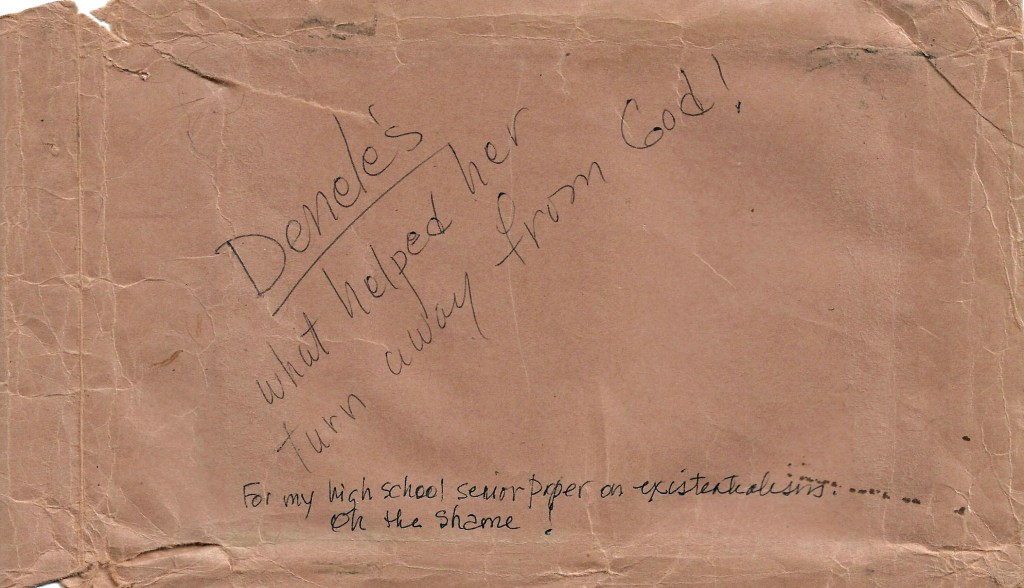 Denele's
what helped her
turn away from God!
For my high school senior paper on existentialism. ........
Oh the shame !